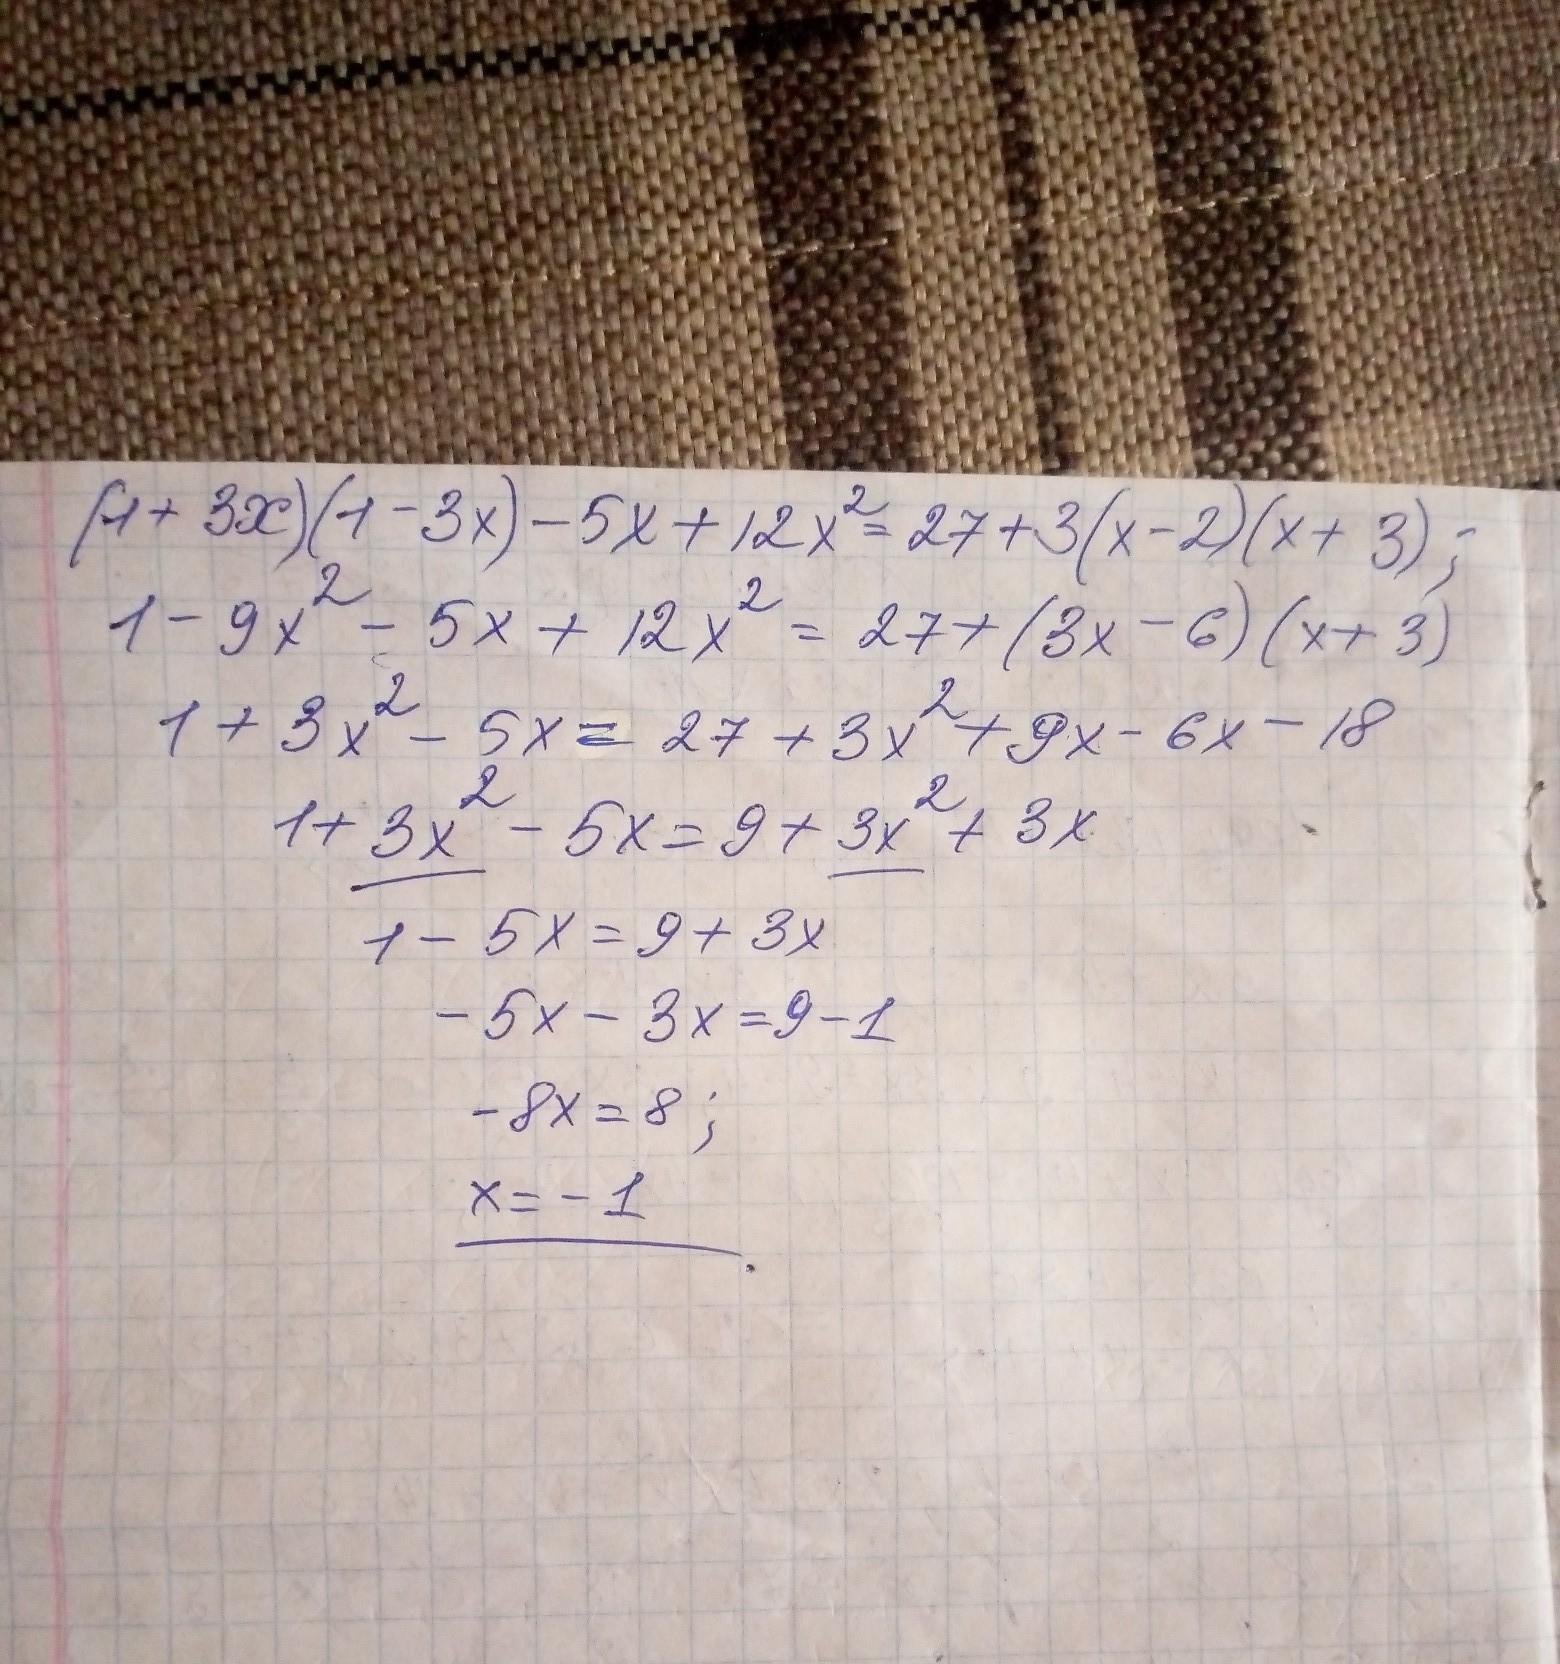 (1+3x)(1-3x)-5x+12x²=27+3(x-2)(x+3);
1-9x²-5x+12x²=27+(3x-6)(x+3)
1+3x²-5x=27+3x²+9x-6x-18
1+3x²-5x=9+3x²+3x
1-5x=9+3x
-5x-3x=9-1
-8x=8;
x=-1.